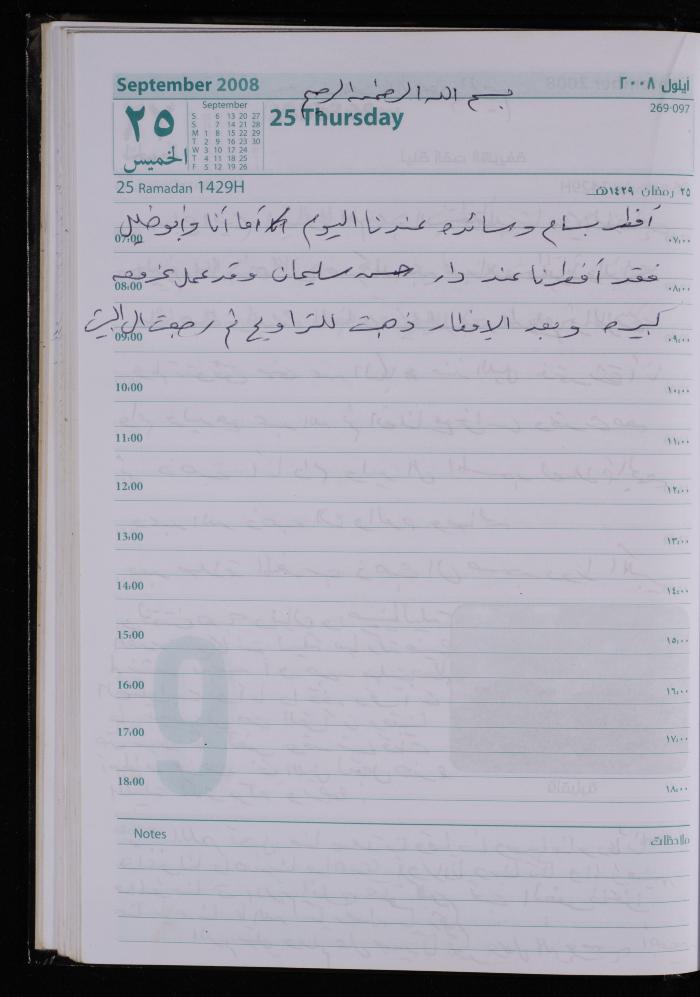 September 2008
أيلول ٢٠٠٨
بسم الله الرحمن الرحيم
٢٥
الخميس
September
S 6 13 20 27
S 7 14 21 28
M 1 8 15 22 29
T 2 9 16 23 30
W 3 10 17 24
T 4 11 18 25
F 5 12 19 26
25 Thursday
269-097
25 Ramadan 1429H
٢٥ رمضان ١٤٢٩هـ
أفطر بسام وسائده عندنا اليوم أما أنا وأبو خليل
07:00
٠٧:٠٠
فقد أفطرنا عند دار حسن سليمان وقد عمل عزومه
08:00
٠٨:٠٠
كبيره وبعد الإفطار ذهبت للتراويح ثم رجعت الى البيت
09:00
٠٩:٠٠
10:00
١٠:٠٠
11:00
١١:٠٠
12:00
١٢:٠٠
13:00
١٣:٠٠
14:00
١٤:٠٠
15:00
١٥:٠٠
16:00
١٦:٠٠
17:00
١٧:٠٠
18:00
١٨:٠٠
Notes
ملاحظات